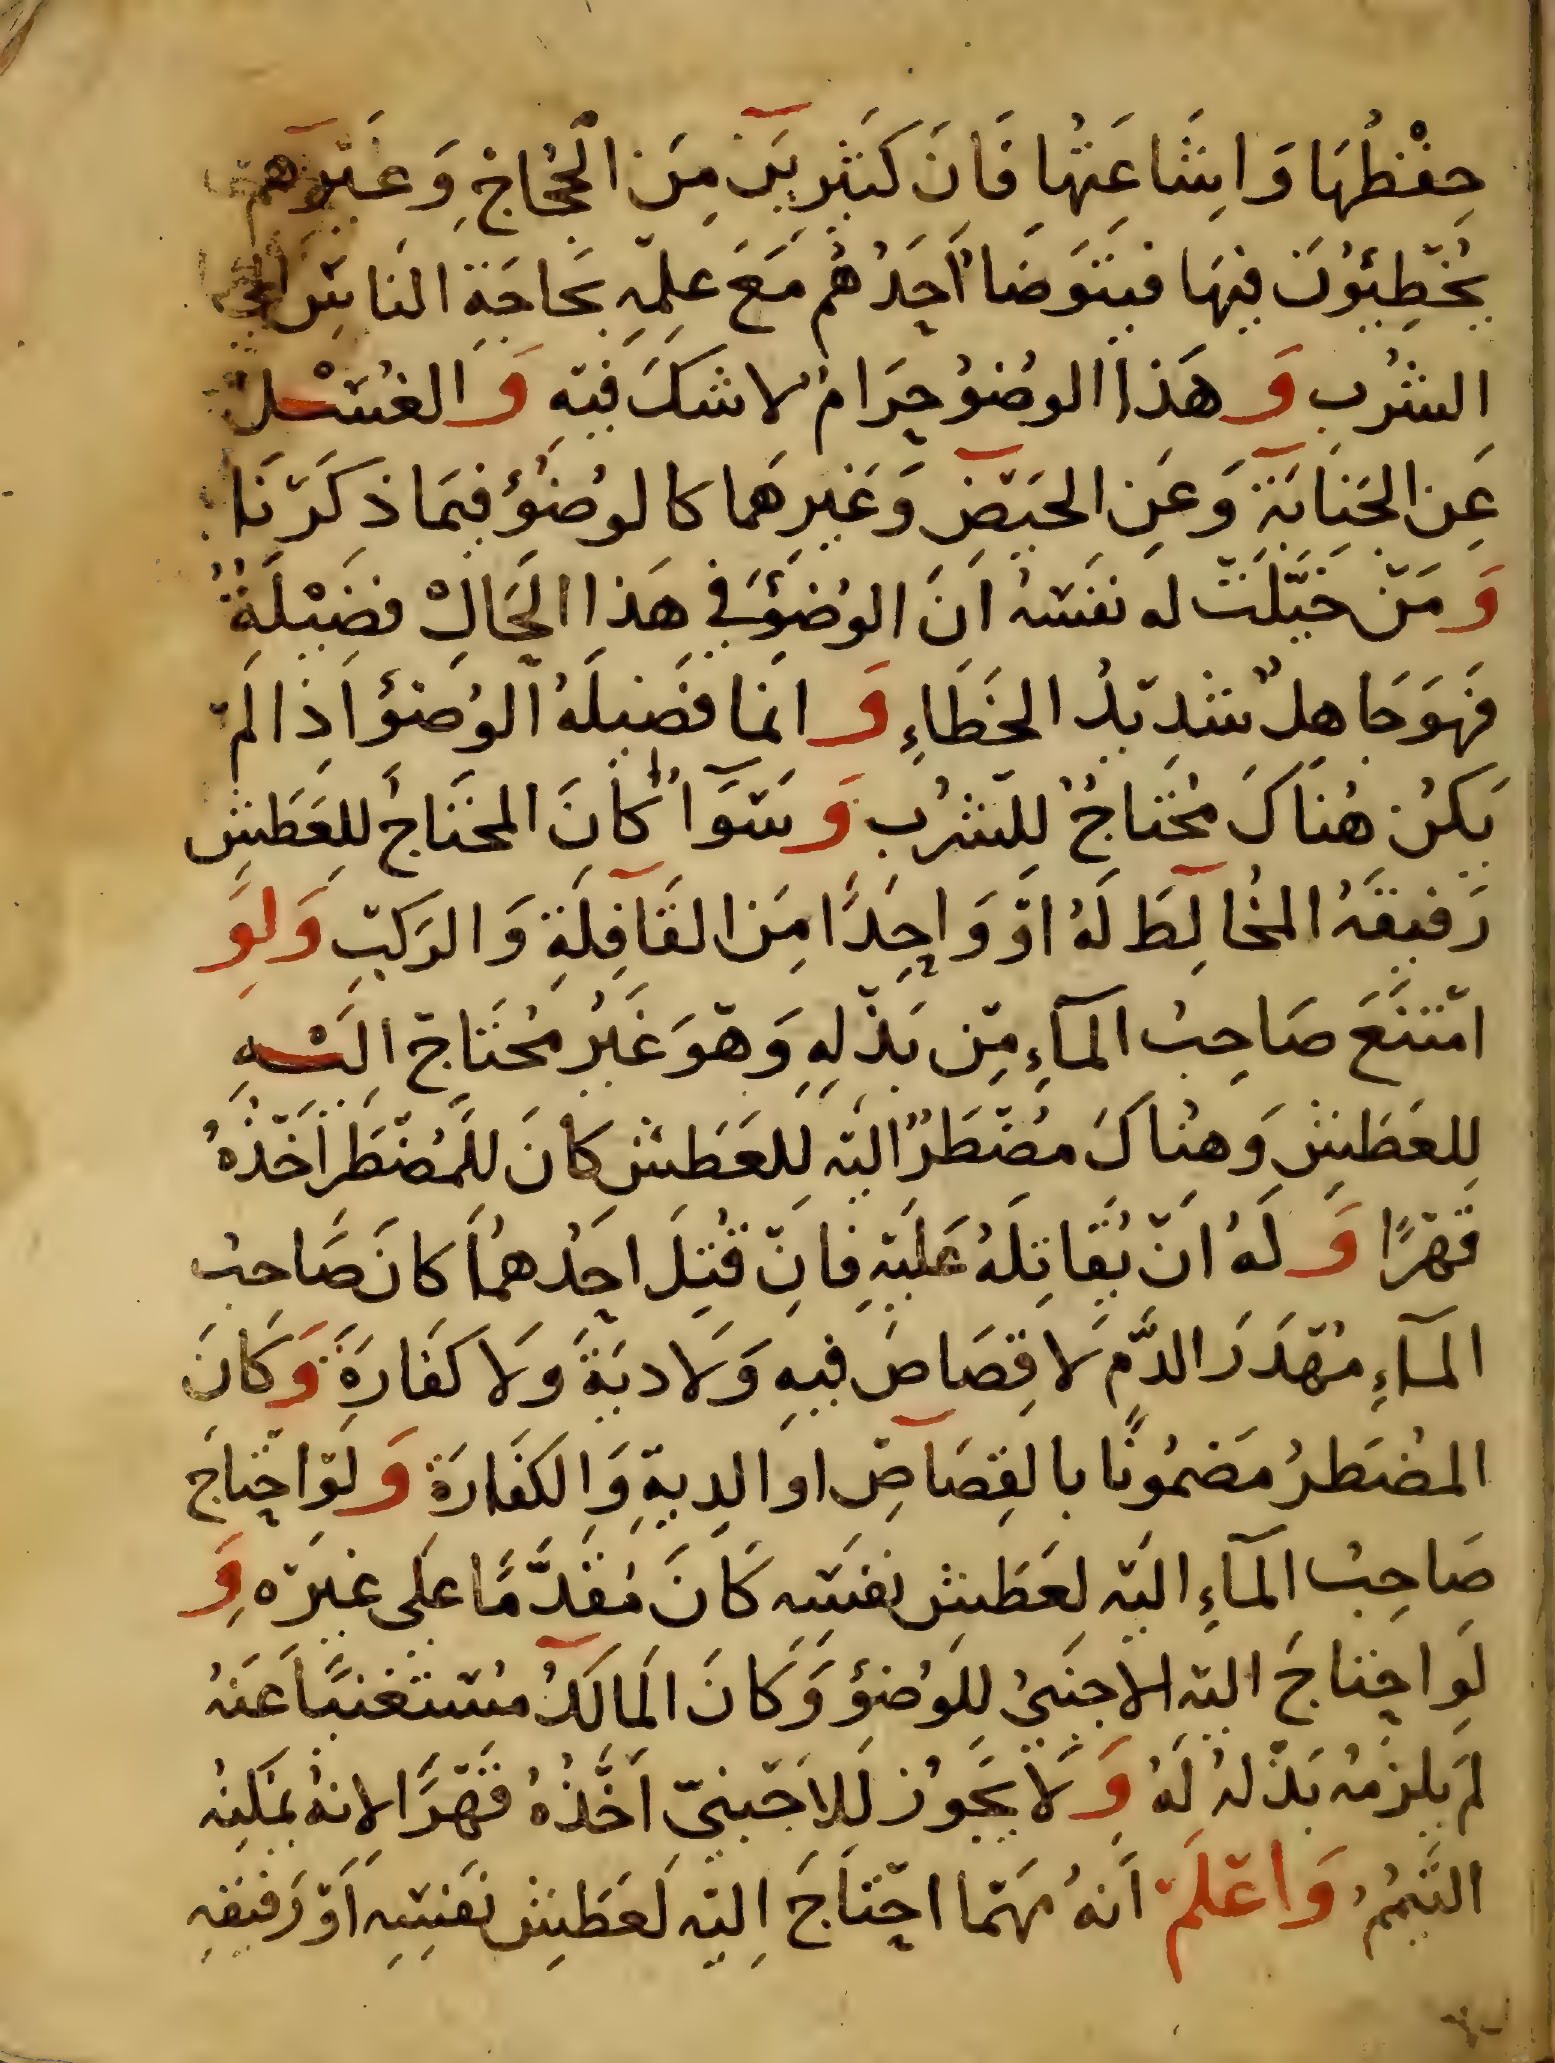 حِفْظُهَا وَاِشَاعَتُهَا فَانَ كَثِيرِيَن مِنَ الْحُجَّاجِ وَغَيرِهم
يُخْطِئوُنَ فيهَا فيَتَوَضَا اَحَدُهُم مَعَ عِلمِهِ بحَاجَةِ النَاسِ الي
الشُربِ وَهَذا الوضُوُ حَرَامٌ لا شكَ فيهِ وَالغُسْل
عَن الجَنابَةِ وَعَنِ الحَيضِ وَغَيرِهما كالوضُوءِ فيمَا ذكَرنَا
وَمَن خَيَّلَت له نفسهُ اَنَ الوُضوءَ في هَذا الحَالِ فضَيْلَةٌ
فَهوَ جَاهِلٌ شَدِيدُ الخَطَاءِ وَانما فَضيلَةُ الوُضوءِ اِذا لم
يَكن هُناكَ مُحتاجٌ للشرُبِ وَسَوَاٌ كانَ المحتَاجُ للعَطَشِ
رَفيقَهُ المخُالِطَ لَهُ او وَاحِدًا مِنَ القَافِلَةِ وَالرَكبِ وَلوَ
امتنَعَ صَاحِبُ المآءِ مِن بَذلِهِ وَهوَ غَيرُ محُتَاج اِليهِ
لِلعَطَشِ وَهنُاكَ مضُطَرٌ اليهِ لِلعَطَشِ كانَ للمُضطَرِ اَخذُهُ
قَهرًا وَلَهُ اَن يُقَاتِلَهُ عَلَيهِ فاِن قُتِلَ احَدُهمَا كانَ صَاحبُ
المآءِ مُهدَرَ الدَّمِ لا قِصَاصَ فيهِ وَلا ديَةَ وَلا كفارَةَ وَكانَ
المضُطَرُ مَضموُنًا بالقِصَاصِ او الدِيةِ وَالكفَارَة وَلوِ احتاجَ
صَاحِبُ المآءِ اليهِ لعَطَشِ نفسَهِ كانَ مُقدَّمًا علَى غيرَه وِ
لَوِ احتاجَ اليهِ الاجنَبيُ للوُضوُء وَكانَ المَالكُ مُستغنيًا عَنهُ
لم يلزَمهُ بَذلهُ لَهُ وَلا يجَوُز لِلاَجنبيّ اَخذُهُ قَهرًا لانهُ يمكنِهُ
التَيمُمُ وَاعلَم اَنهُ مَهمَا احتاَجَ اِليهِ لَعطَشِ نفسِهِ اَو رَفيقهِ